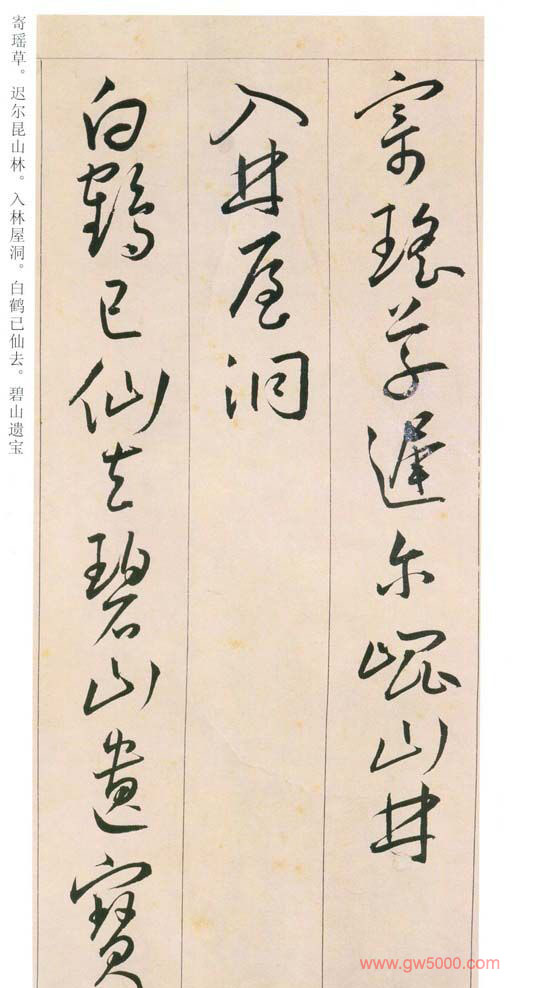 寄瑶草遲尔崐山林
入林屋洞
白鶴已仙去碧山遺寶
寄瑶草。迟尔昆山林。入林屋洞。白鹤已仙去。碧山遗宝
www.gw5000.com